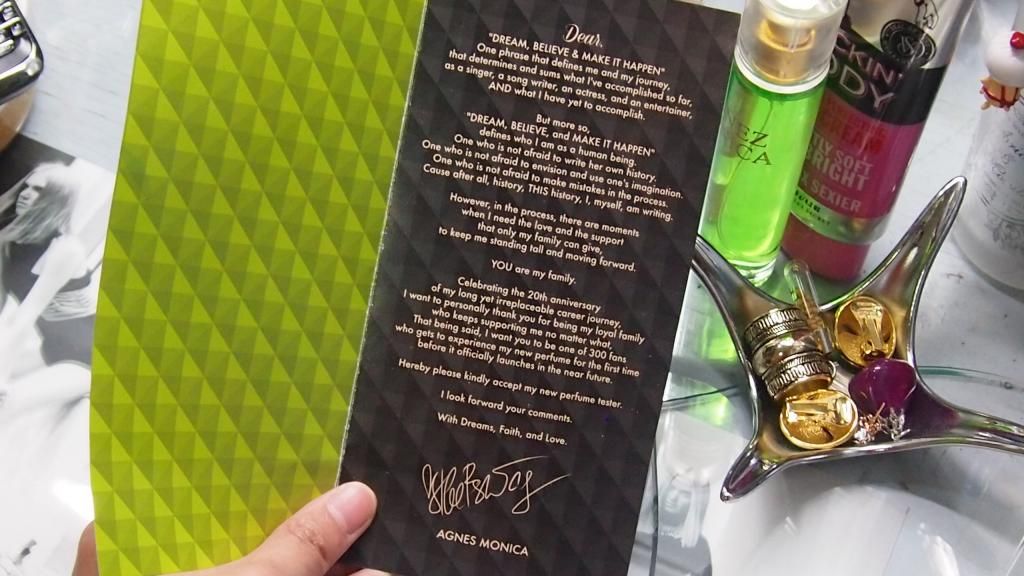 Dear,
"DREAM, BELIEVE & MAKE IT HAPPEN"
One phrase that defines me and my journey,
that determines and sums what I've accomplished so far,
as a singer, a song writer, an actress, and an entertainer,
AND what I have yet to accomplish.
But more so,
"DREAM, BELIEVE, and MAKE IT HAPPEN"
defines who I am as a human being.
One who is not afraid to write her own history.
One who is not afraid to envision and use one's imagination.
One who is not afraid to make mistakes in the process.
Cause after all, history, THIS history, I, myself, am writing.
However, in the process, there are moments
when I need the love and the support
that only my family can give,
to keep me standing tall and moving forward.
YOU are my family.
Celebrating the 20th anniversary
of my long yet irreplaceable career journey,
I want to personally thank you for being my loyal family
who keeps supporting me no matter what.
That being said, I want you to be one of 300 fans
who gets to experience my new perfume for the first time
before it officially launches in the near future.
Hereby please kindly accept my new perfume tester.
I look forward your comments.
With Dreams, Faith, and Love.
AGNES MONICA
EZ
CA
KIN
DDY
SOFT
RIGHT
SEXIER